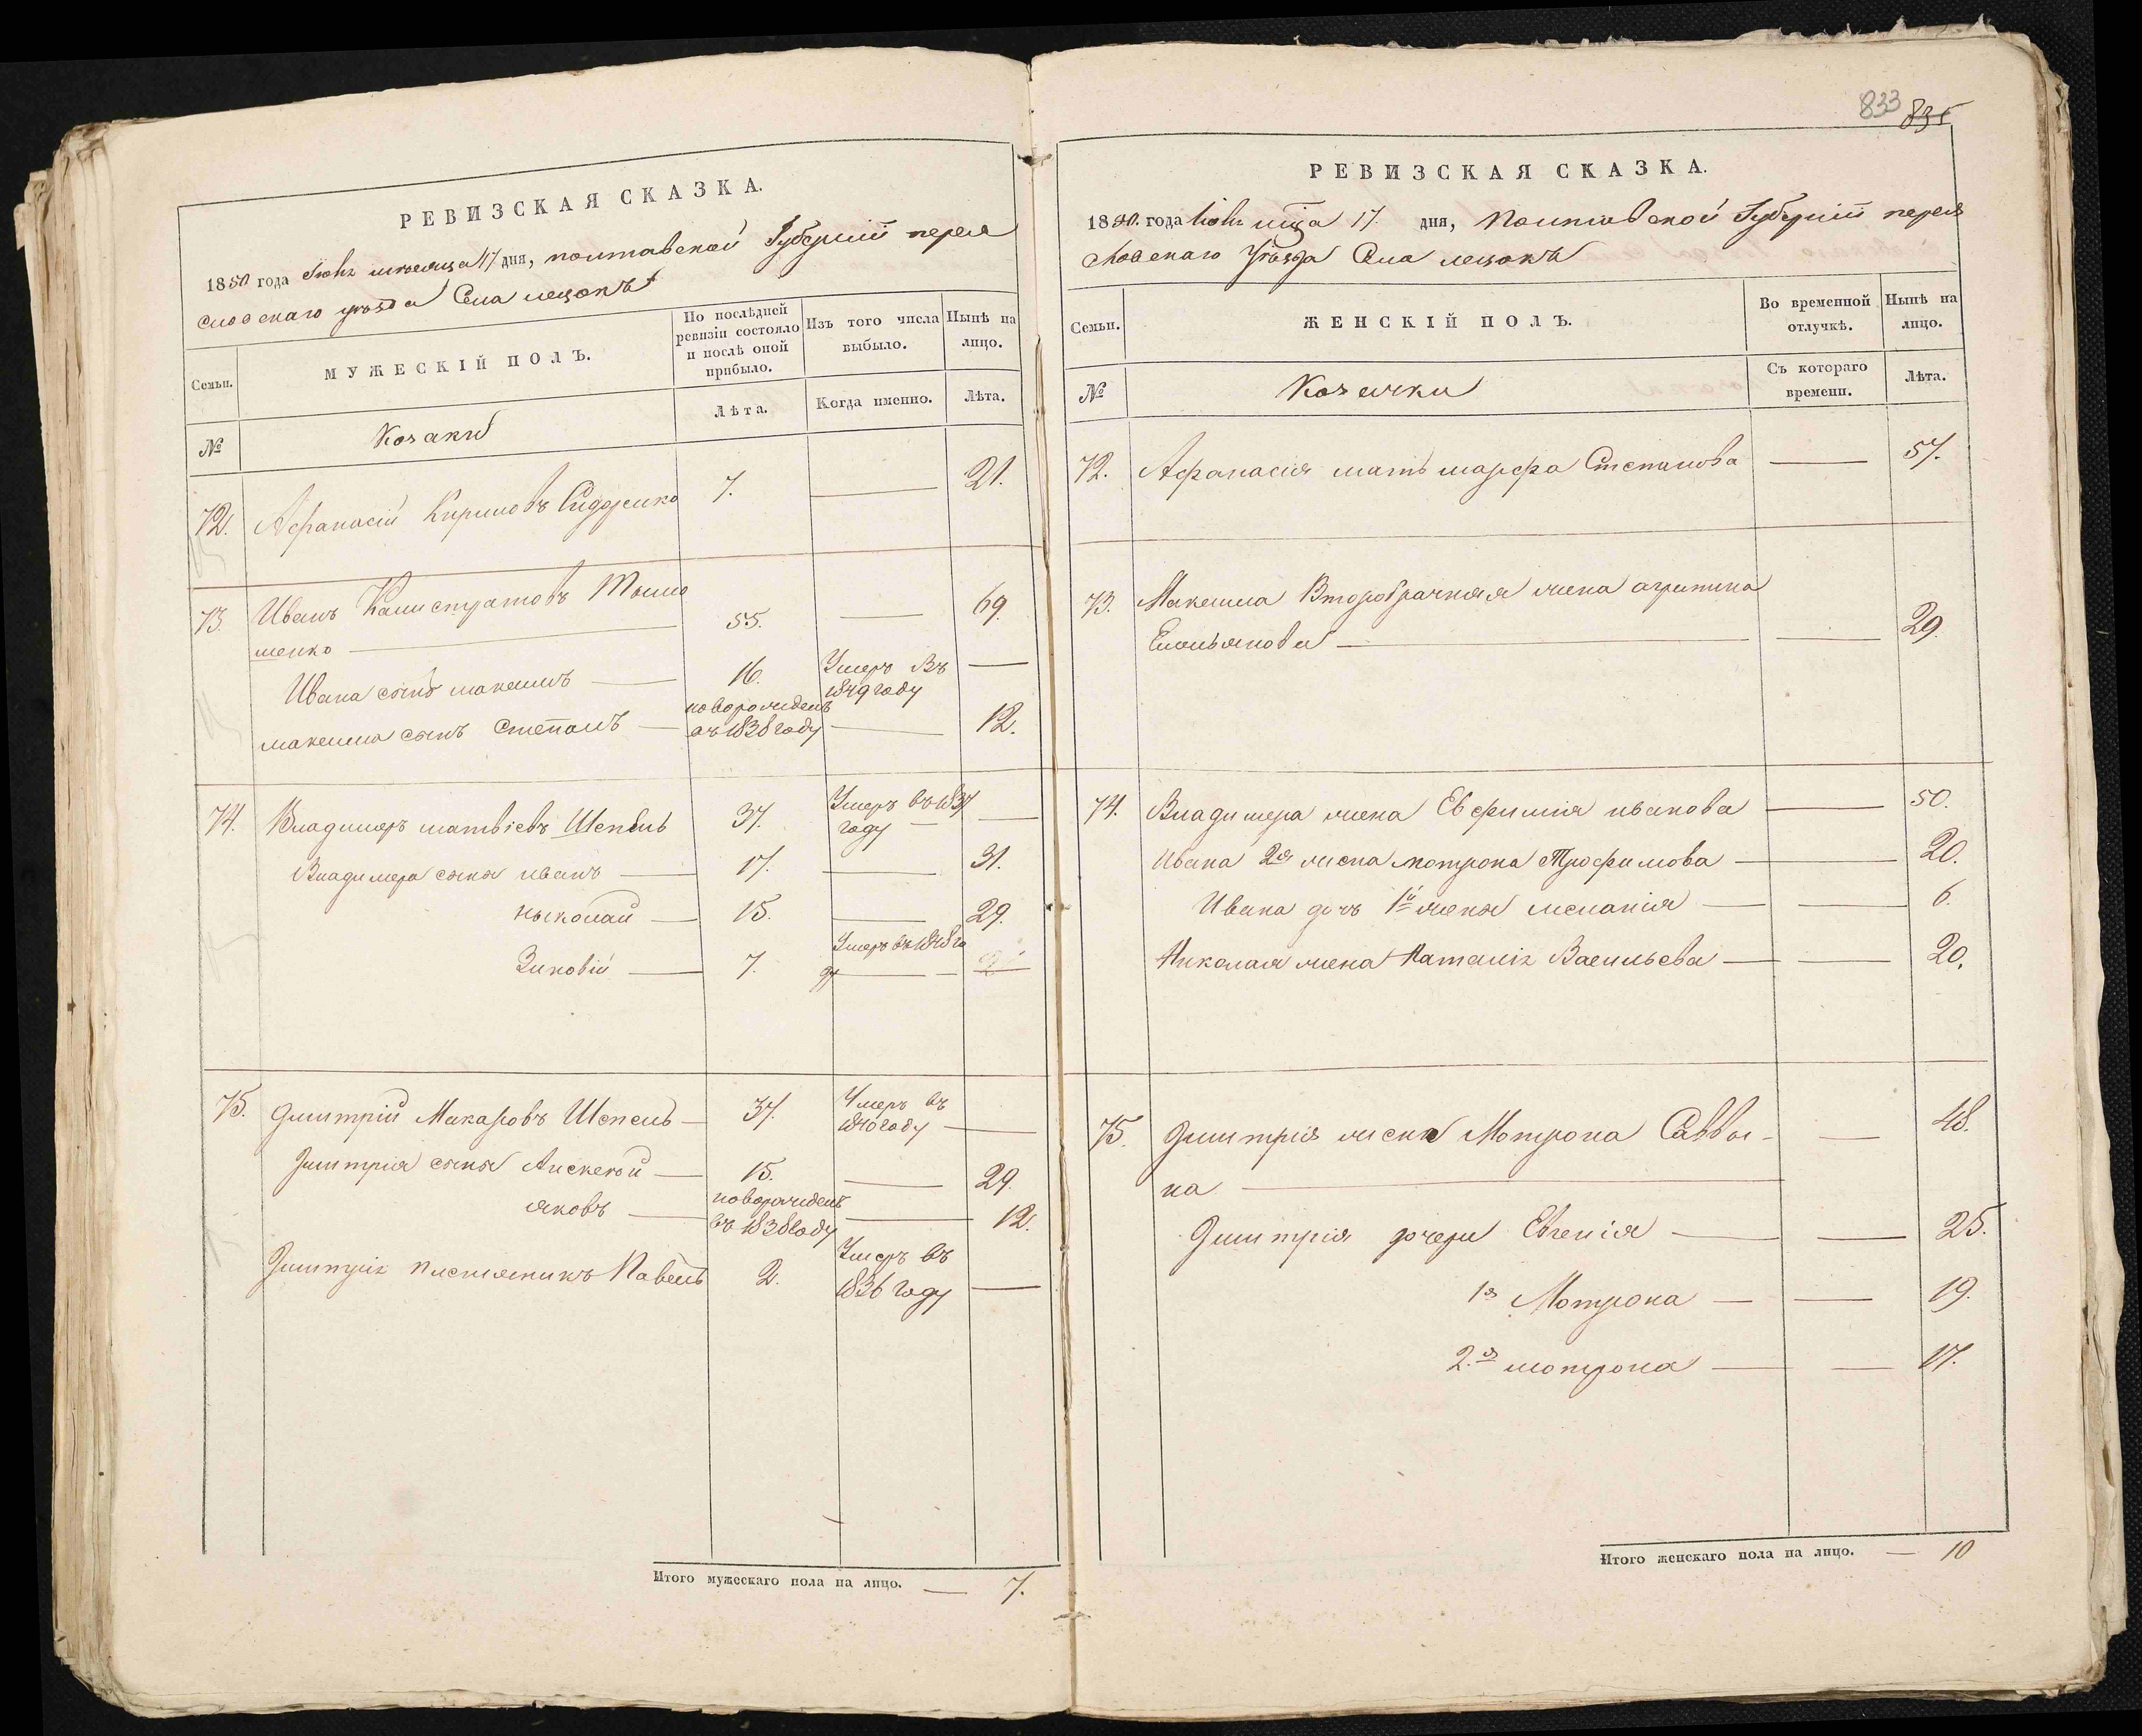 833 835
РЕВИЗСКАЯ СКАЗКА.
1850 года Іюня месяца 17 дня, полтавской Губерніи перея
славскаго уѣзда Села лецокъ
Семьи.
МУЖЕСКІЙ ПОЛЪ.
По послѣдней ревизіи состояло и послѣ оной прибыло.
Изъ того числа выбыло.
Нынѣ на лицо.
Лѣта.
Когда именно.
Лѣта.
№
Козаки
72. Афанасій Кириловъ Сидоренко 7. 21.
73. Иванъ Калистратовъ Тымо
шенко 55. 69.
Ивана сынъ максимъ 16. Умеръ Въ 1849 году
максима сынъ Степанъ новорожденъ въ 1838 году 12.
74. Владимеръ матвіевъ Шепель 37. Умеръ въ 1837 году
Владимера сыны иванъ 17. 31.
ныколай 15. 29.
Зиновій 7. Умеръ въ 1848 го
ду
75. Дмитрій Макаровъ Шепель 37. Умеръ въ 1840 году
Дмитрія сыны Алексѣй 15. 29.
яковъ новорожденъ въ 1838 году 12.
Дмитрія племяникъ Павелъ 2. Умеръ въ 1836 году
Итого мужескаго пола на лицо. 7.
РЕВИЗСКАЯ СКАЗКА.
1850. года Іюня мца 17. дня, Полтавской Губерніи перея
славскаго Уѣзда Села лецокъ
Семьи.
ЖЕНСКІЙ ПОЛЪ.
Во временной отлучкѣ.
Нынѣ на лицо.
№
Козачки
Съ котораго времени.
Лѣта.
72. Афанасія мать марфа Степанова 57.
73. Максима Второбрачная жена агрипина
Емельянова 29.
74. Владимера жена Евфимія иванова 50.
Ивана 2я жена мотрона Трофимова 20.
Ивана дочь 1й жены меланія 6.
Николая жена Наталія Васильева 20.
75. Дмитрія жена Мотрона Савви-
на 48.
Дмитрія дочери Евгенія 25.
1я Мотрона 19.
2.я мотрона 17.
Итого женскаго пола на лицо. 10